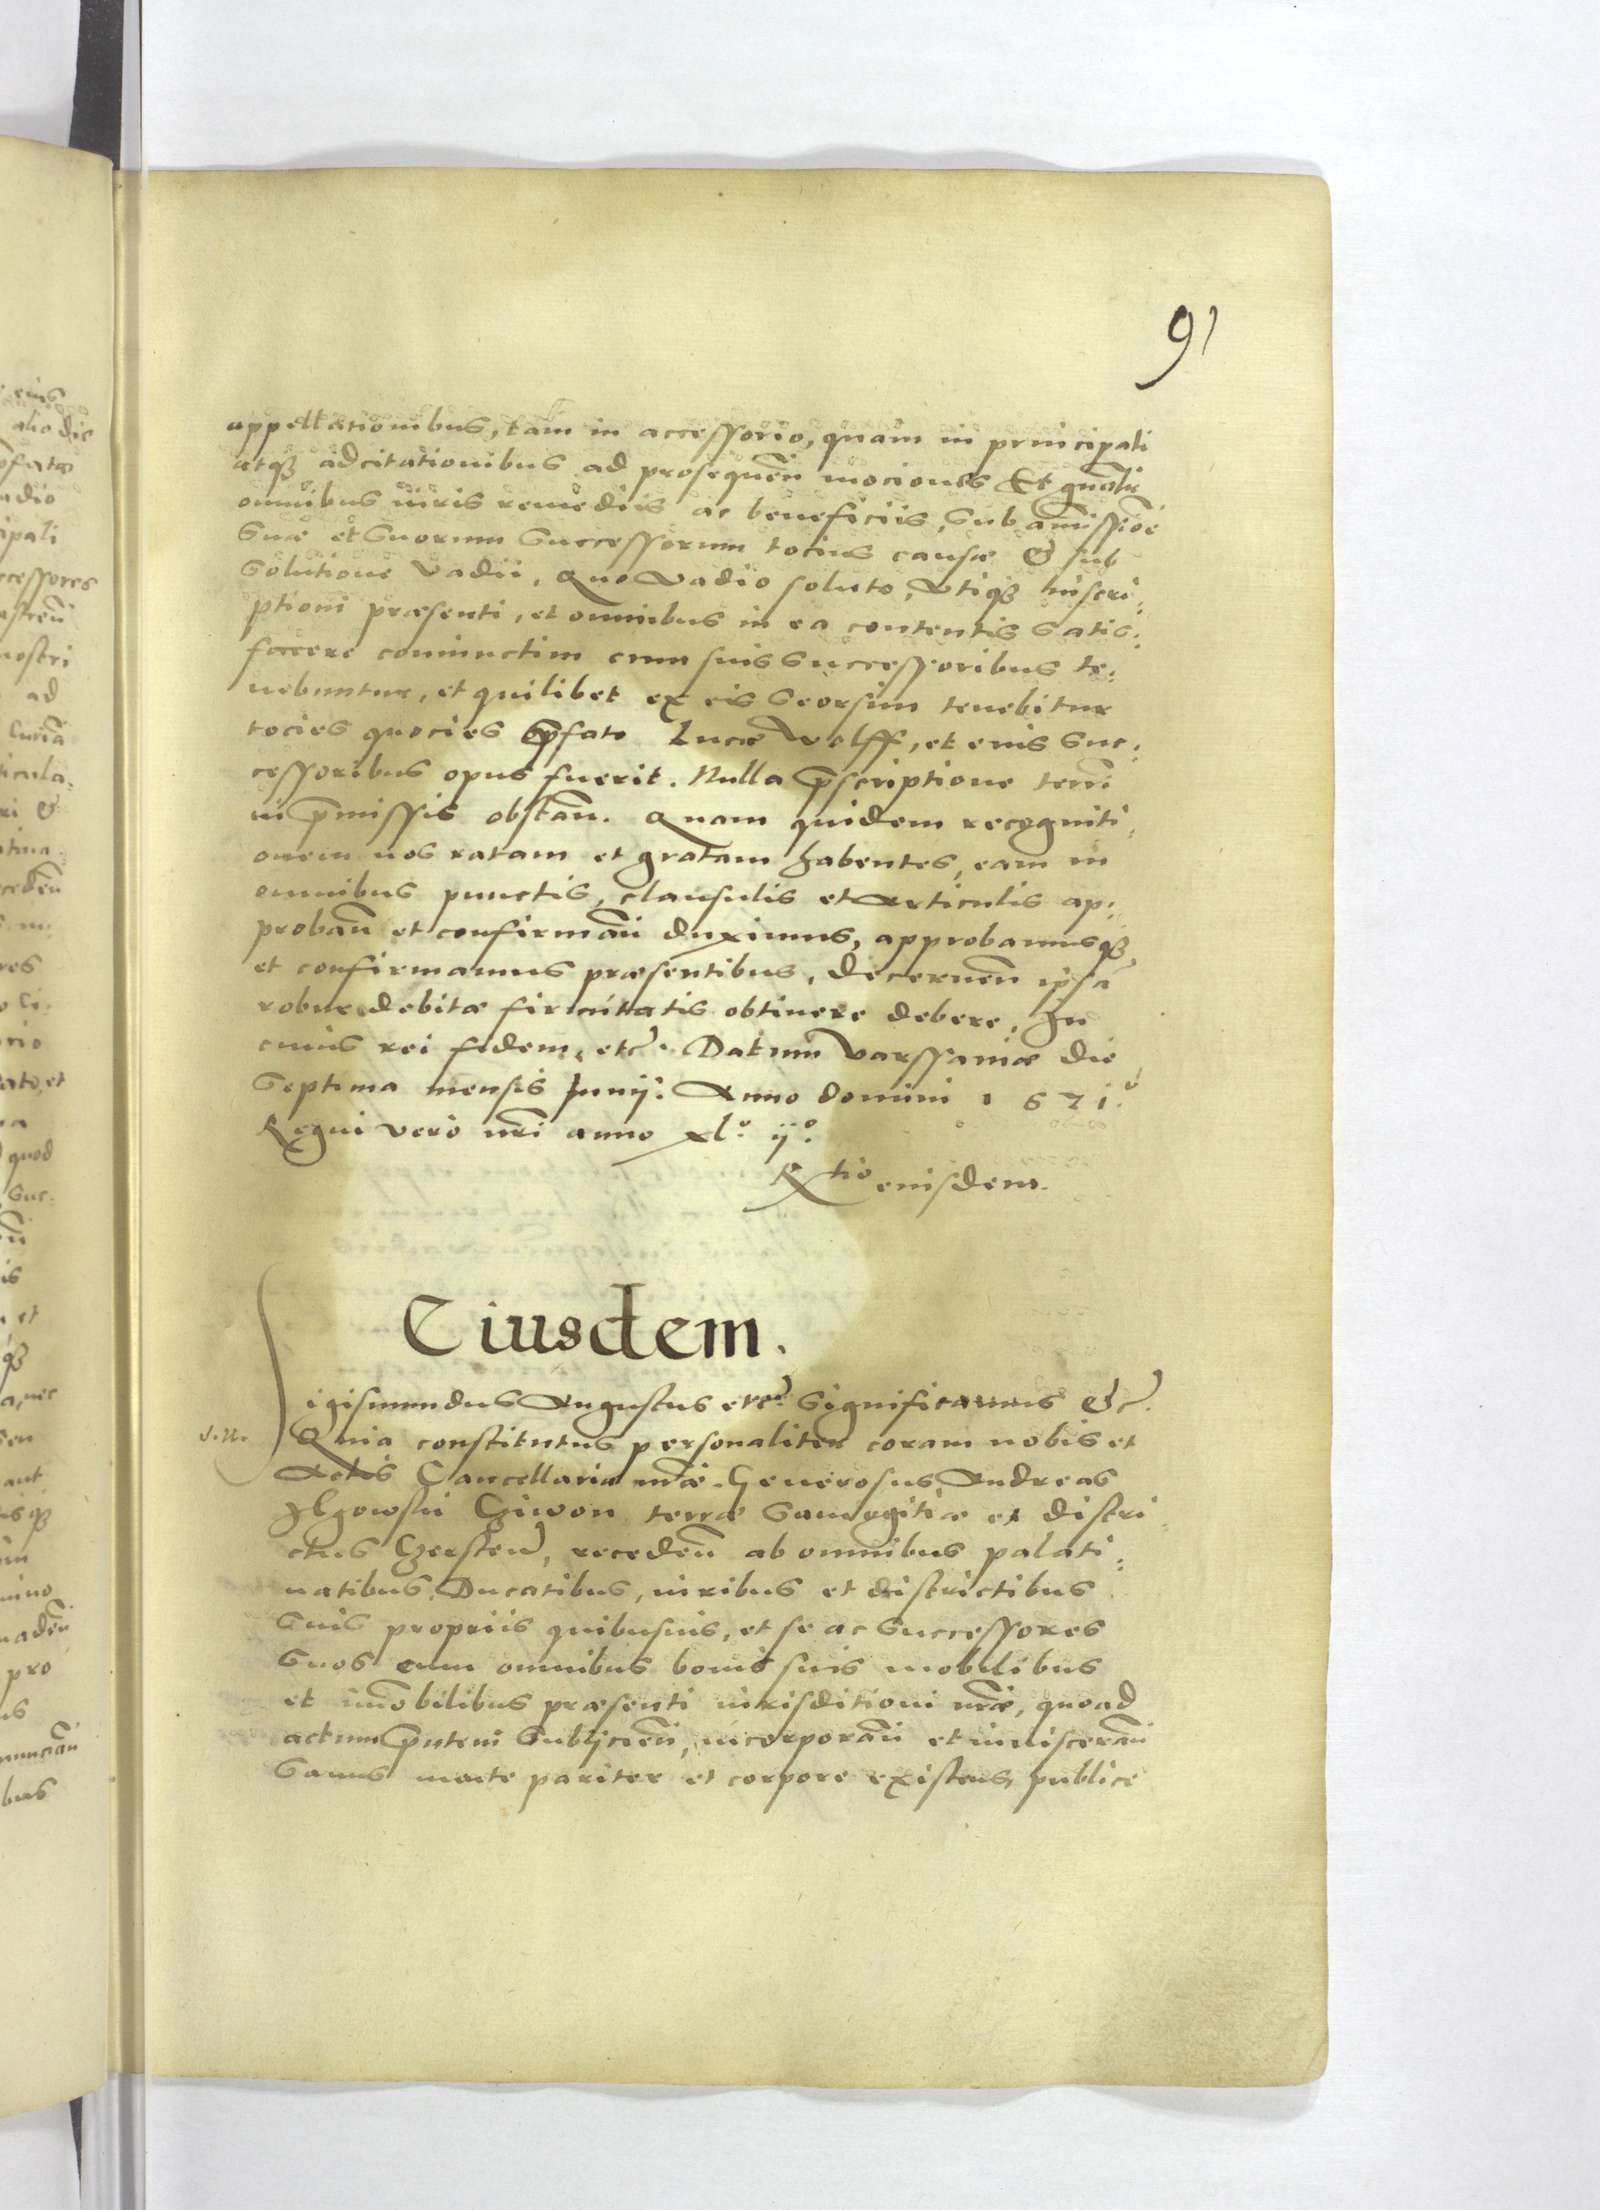 91
appellationibus, tam in accessorio, quam in principali
atqȝ adcitationibus ad prosequen̄ mociones Et gnālr
omnibus iuris remediis ac beneficiis, sub amissiōe
suæ et suorum successorum tocius causæ & sub
solutione vadii, Quo vadio soluto, utiqȝ Inscri,
ptioni præsenti, et omnibus in ea contentis satis:
facere coniunctim cum suis successoribus te:
nebuntur, et quilibet ex eis seorsim tenebitur
tocies quocies p̄fato Lucæ Wolff, et eius suc:
cessoribus opus fuerit. Nulla p̄scriptione terr̄i
in p̄missis obstan̄. Quam quidem recogniti,
onem nos ratam et gratam habentes, eam in
omnibus punctis, clausulis et articulis ap:
proban̄ et confirman̄ duximus, approbamusqȝ
et confirmamus præsentibus, decernen̄ ipsā
robur debitæ firmitatis obtinere debere, In
cuius rei fidem, etc. Datum Varssaviæ die
septima mensis Junij: Anno domini 1571º
Regni vero nr̄i anno xlº ijº
Rtio eiusdem.
Eiusdem.
igismundus Augustus etc. significamus &c.
Quia constitutus personaliter coram nobis et
Actis Cancellariæ nr̄æ. Generosus Andreas
Ilgowski Ciwon terræ Samogitiæ et distri
ctus, receden̄ ab omnibus palati:
natibus, Ducatibus, iuribus et districtibus
suis propriis quibusuis, et se ac successores
suos cum omnibus bonis suis mobilibus
et im̄obilibus præsenti iurisditioni nr̄æ, quoad
actum p̄ntem subijcien̄, incorporan̄ et inuisceran̄
sanus mente pariter et corpore existens, publice